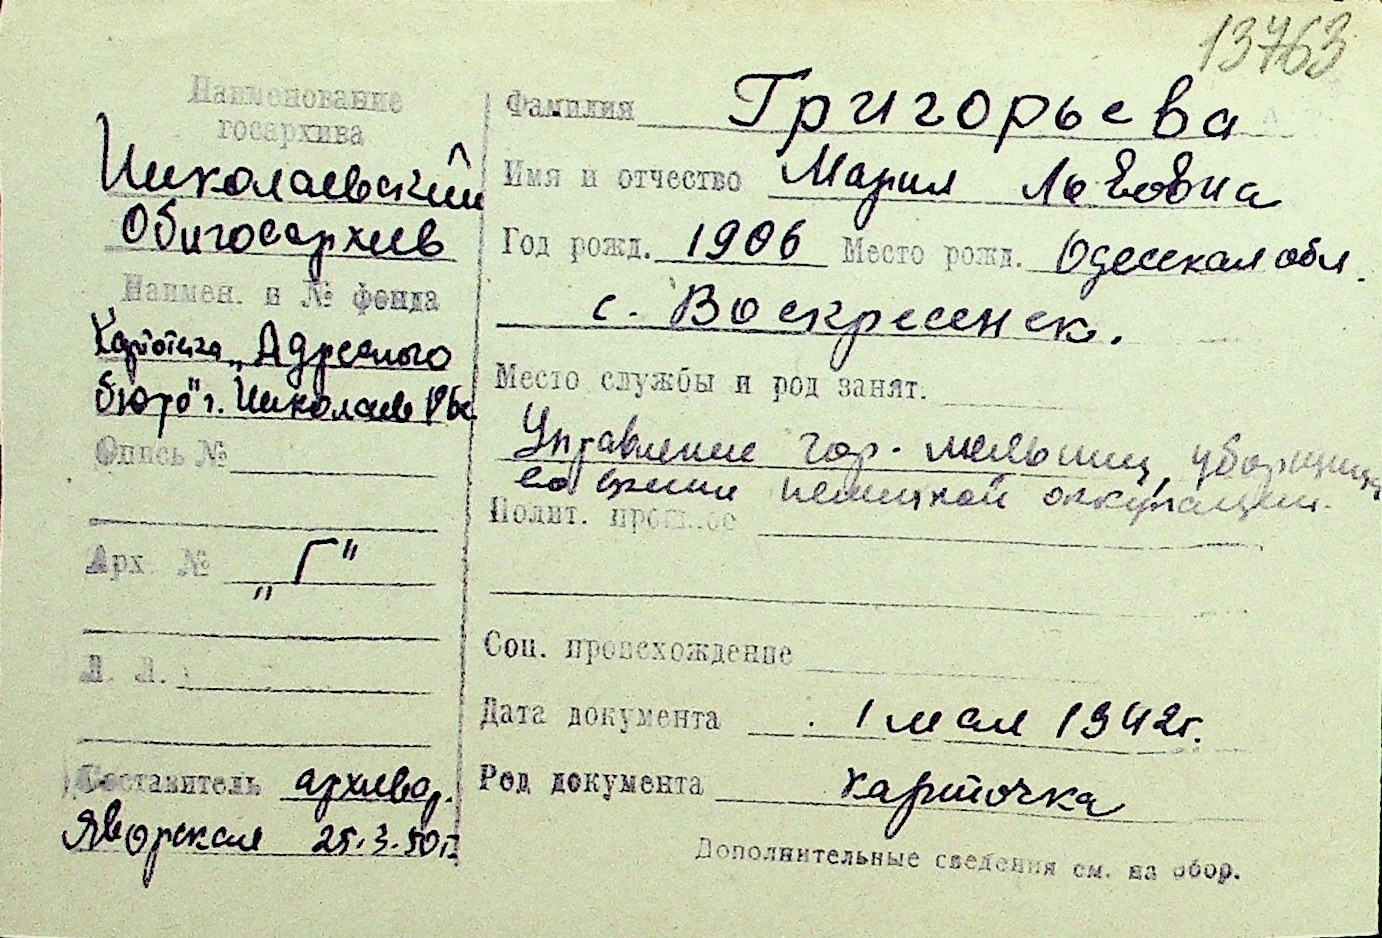 13763
Наименование
госархива
Николаевский
Облгосархив
Наимен. и № фонда
Картотека „Адресного
бюро" г. Николаев
Опись №
Арх. № „Г"
Л. Л.
Составитель архивар.
Яворская 25.3.50г.
Фамилия Григорьева
Имя и отчество Мария Львовна
Год рожд. 1906 Место рожд. Одесская обл.
с. Воскресенск.
Место службы и род занят.
Управление гор. мельниц, уборщица
во время немецкой оккупации.
Полит. прошлое
Соц. происхождение
Дата документа 1 мая 1942г.
Род документа карточка
Дополнительные сведения см. на обор.